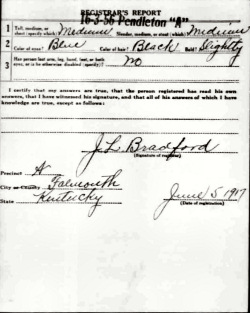 REGISTRAR'S REPORT
16-3-56 Pendleton "A"
1 Tall, medium, or short (specify which)? Medium Slender, medium, or stout (which)? Medium
2 Color of eyes? Blue Color of hair? Black Bald? Slightly
3 Has person lost arm, leg, hand, foot, or both eyes, or is he otherwise disabled (specify)? no
I certify that my answers are true, that the person registered has read his own answers, that I have witnessed his signature, and that all of his answers of which I have knowledge are true, except as follows:
J. L. Bradford
(Signature of registrar)
Precinct A
City or County Falmouth
State Kentucky
June 5 1917
(Date of registration)